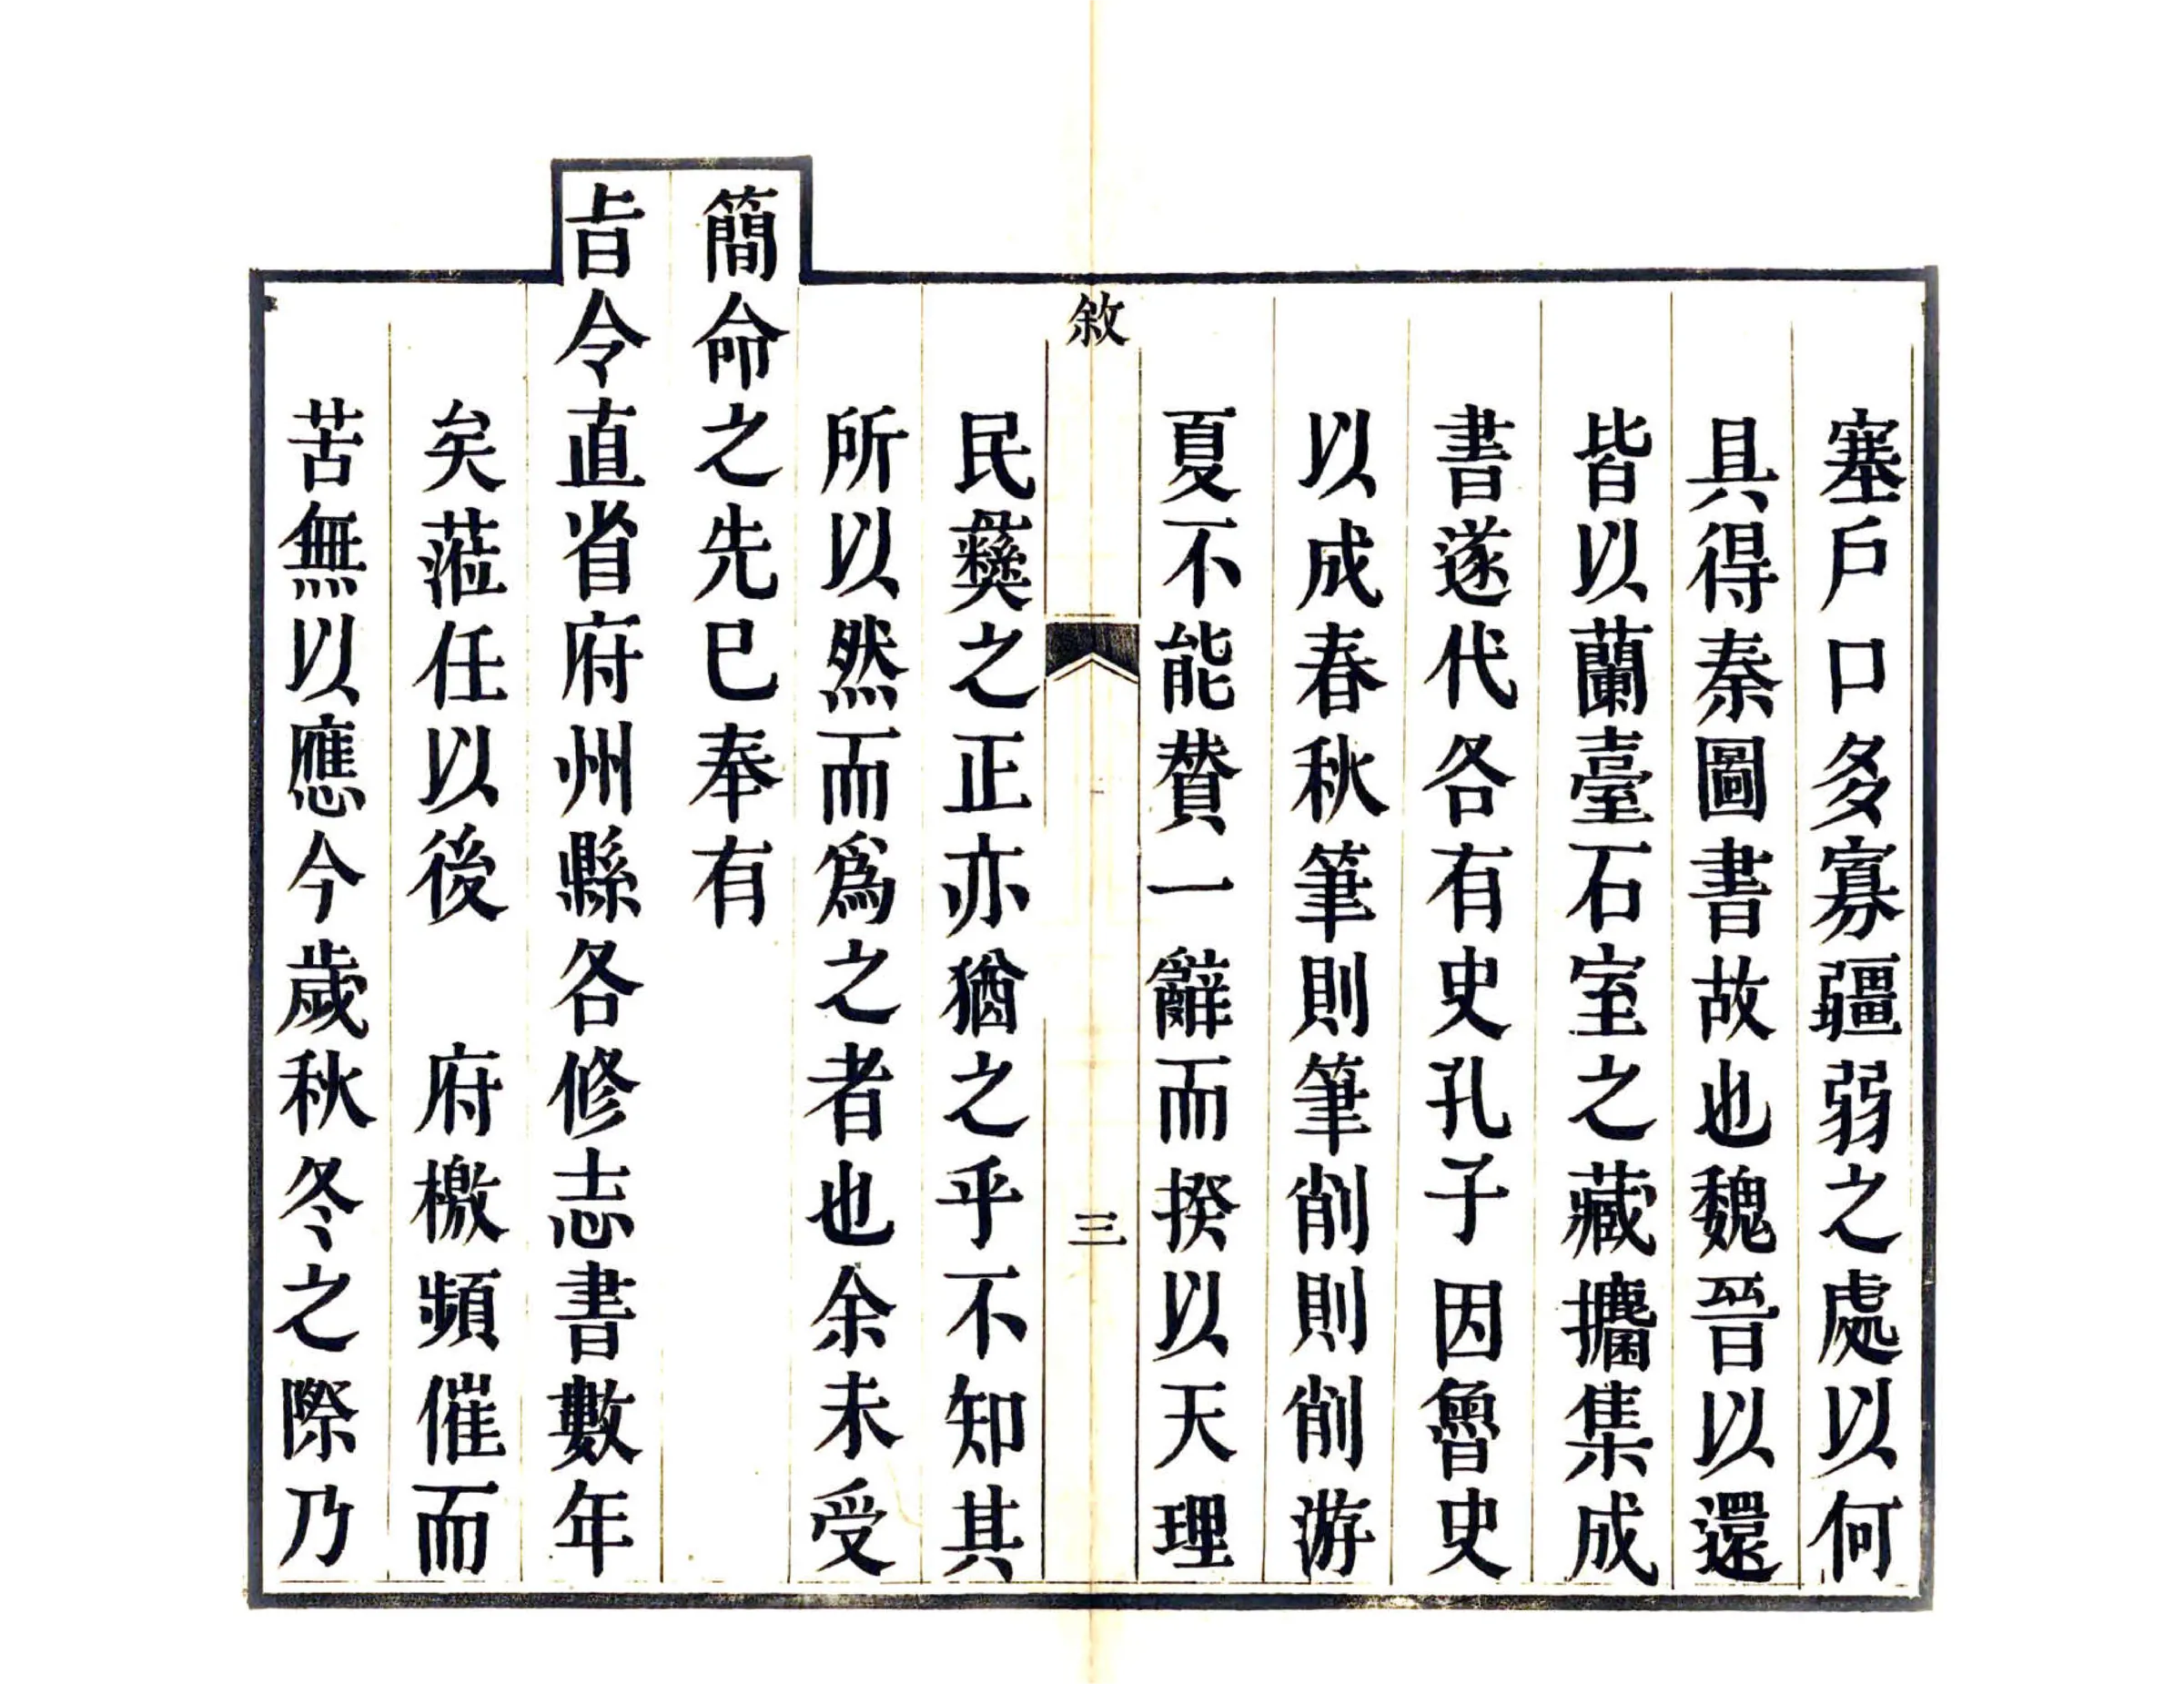 塞戶口多寡疆弱之處以何
具得秦圖書故也魏晉以還
皆以蘭臺石室之藏攟集成
書遂代各有史孔子因魯史
以成春秋筆則筆削則削游
夏不能賛一辭而揆以天理
敘
三
民彝之正亦猶之乎不知其
所以然而爲之者也余未受
簡命之先已奉有
旨令直省府州縣各修志書數年
矣蒞任以後　府檄頻催而
苦無以應今歲秋冬之際乃